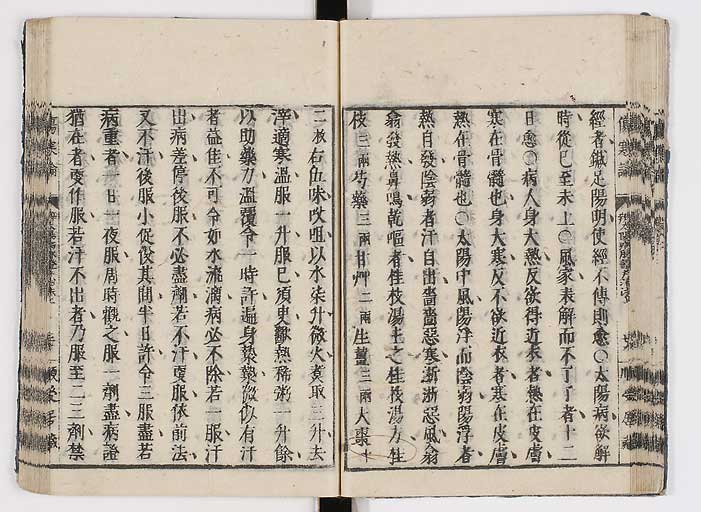 經者鍼足陽明使經不傳則愈○太陽病欲解
時從巳至未上○風家表解而不了了者十二
日愈○病人身大熱反欲得近衣者熱在皮膚
寒在骨髓也身大寒反不欲近衣者寒在皮膚
熱在骨髓也○太陽中風陽浮而陰弱陽浮者
熱自發陰弱者汗自出嗇嗇惡寒淅淅惡風翕
翕發熱鼻鳴乾嘔者桂枝湯主之桂枝湯方桂
枝三兩芍藥三兩甘艸二兩生薑三兩大棗十
二枚右五味㕮咀以水柒升微火煑取三升去
滓適寒溫服一升服已須臾歠熱稀粥一升餘
以助藥力溫覆令一時許遍身漐漐微似有汗
者益佳不可令如水流漓病必不除若一服汗
出病差停後服不必盡劑若不汗更服依前法
又不汗後服小促役其間半日許令三服盡若
病重者一日一夜服周時觀之服一劑盡病證
猶在者更作服若汗不出者乃服至二三劑禁
傷寒論